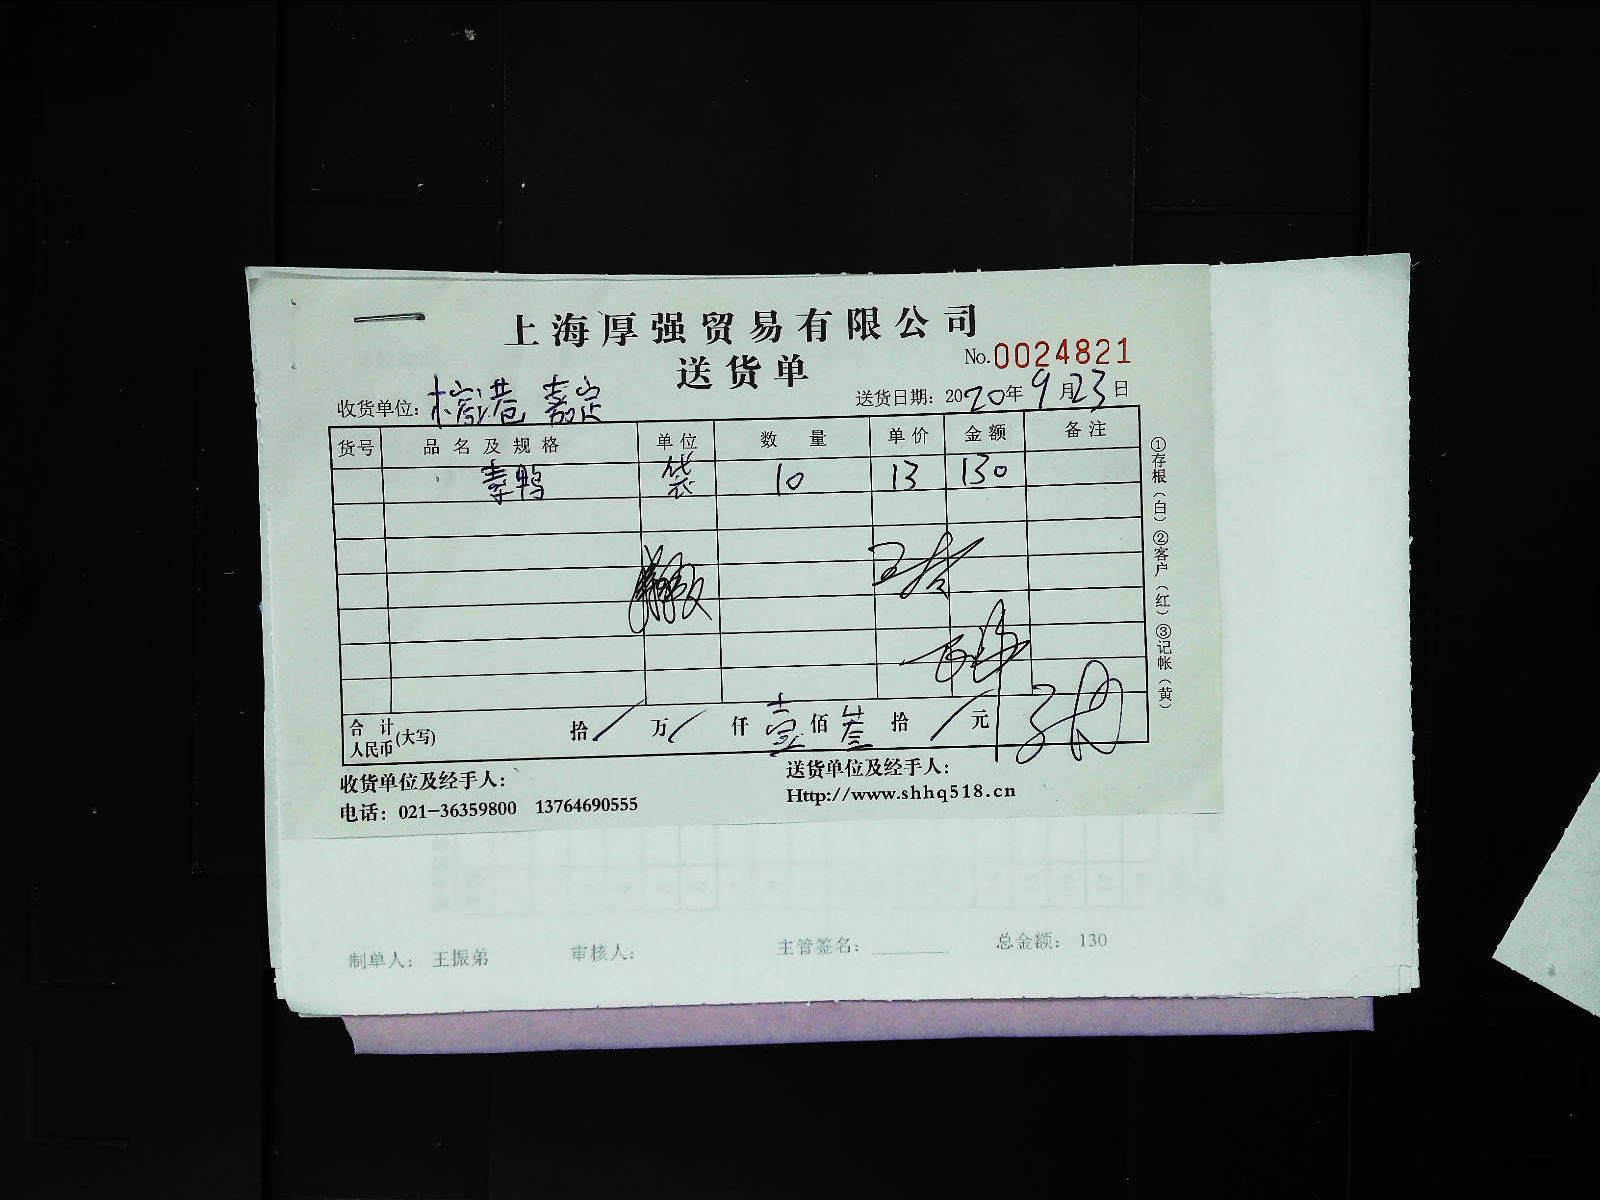 上海厚强贸易有限公司
送货单
No.0024821
收货单位： 嘉定
送货日期：2020年9月23日
货号 品名及规格 单位 数量 单价 金额 备注
素鸭 袋 10 13 130
合计人民币(大写) 拾/万/仟壹佰叁拾/元
①存根（白）②客户（红）③记帐（黄）
收货单位及经手人：
送货单位及经手人：
电话：021-36359800 13764690555
Http://www.shhq518.cn
制单人：王振弟 审核人： 主管签名： 总金额：130